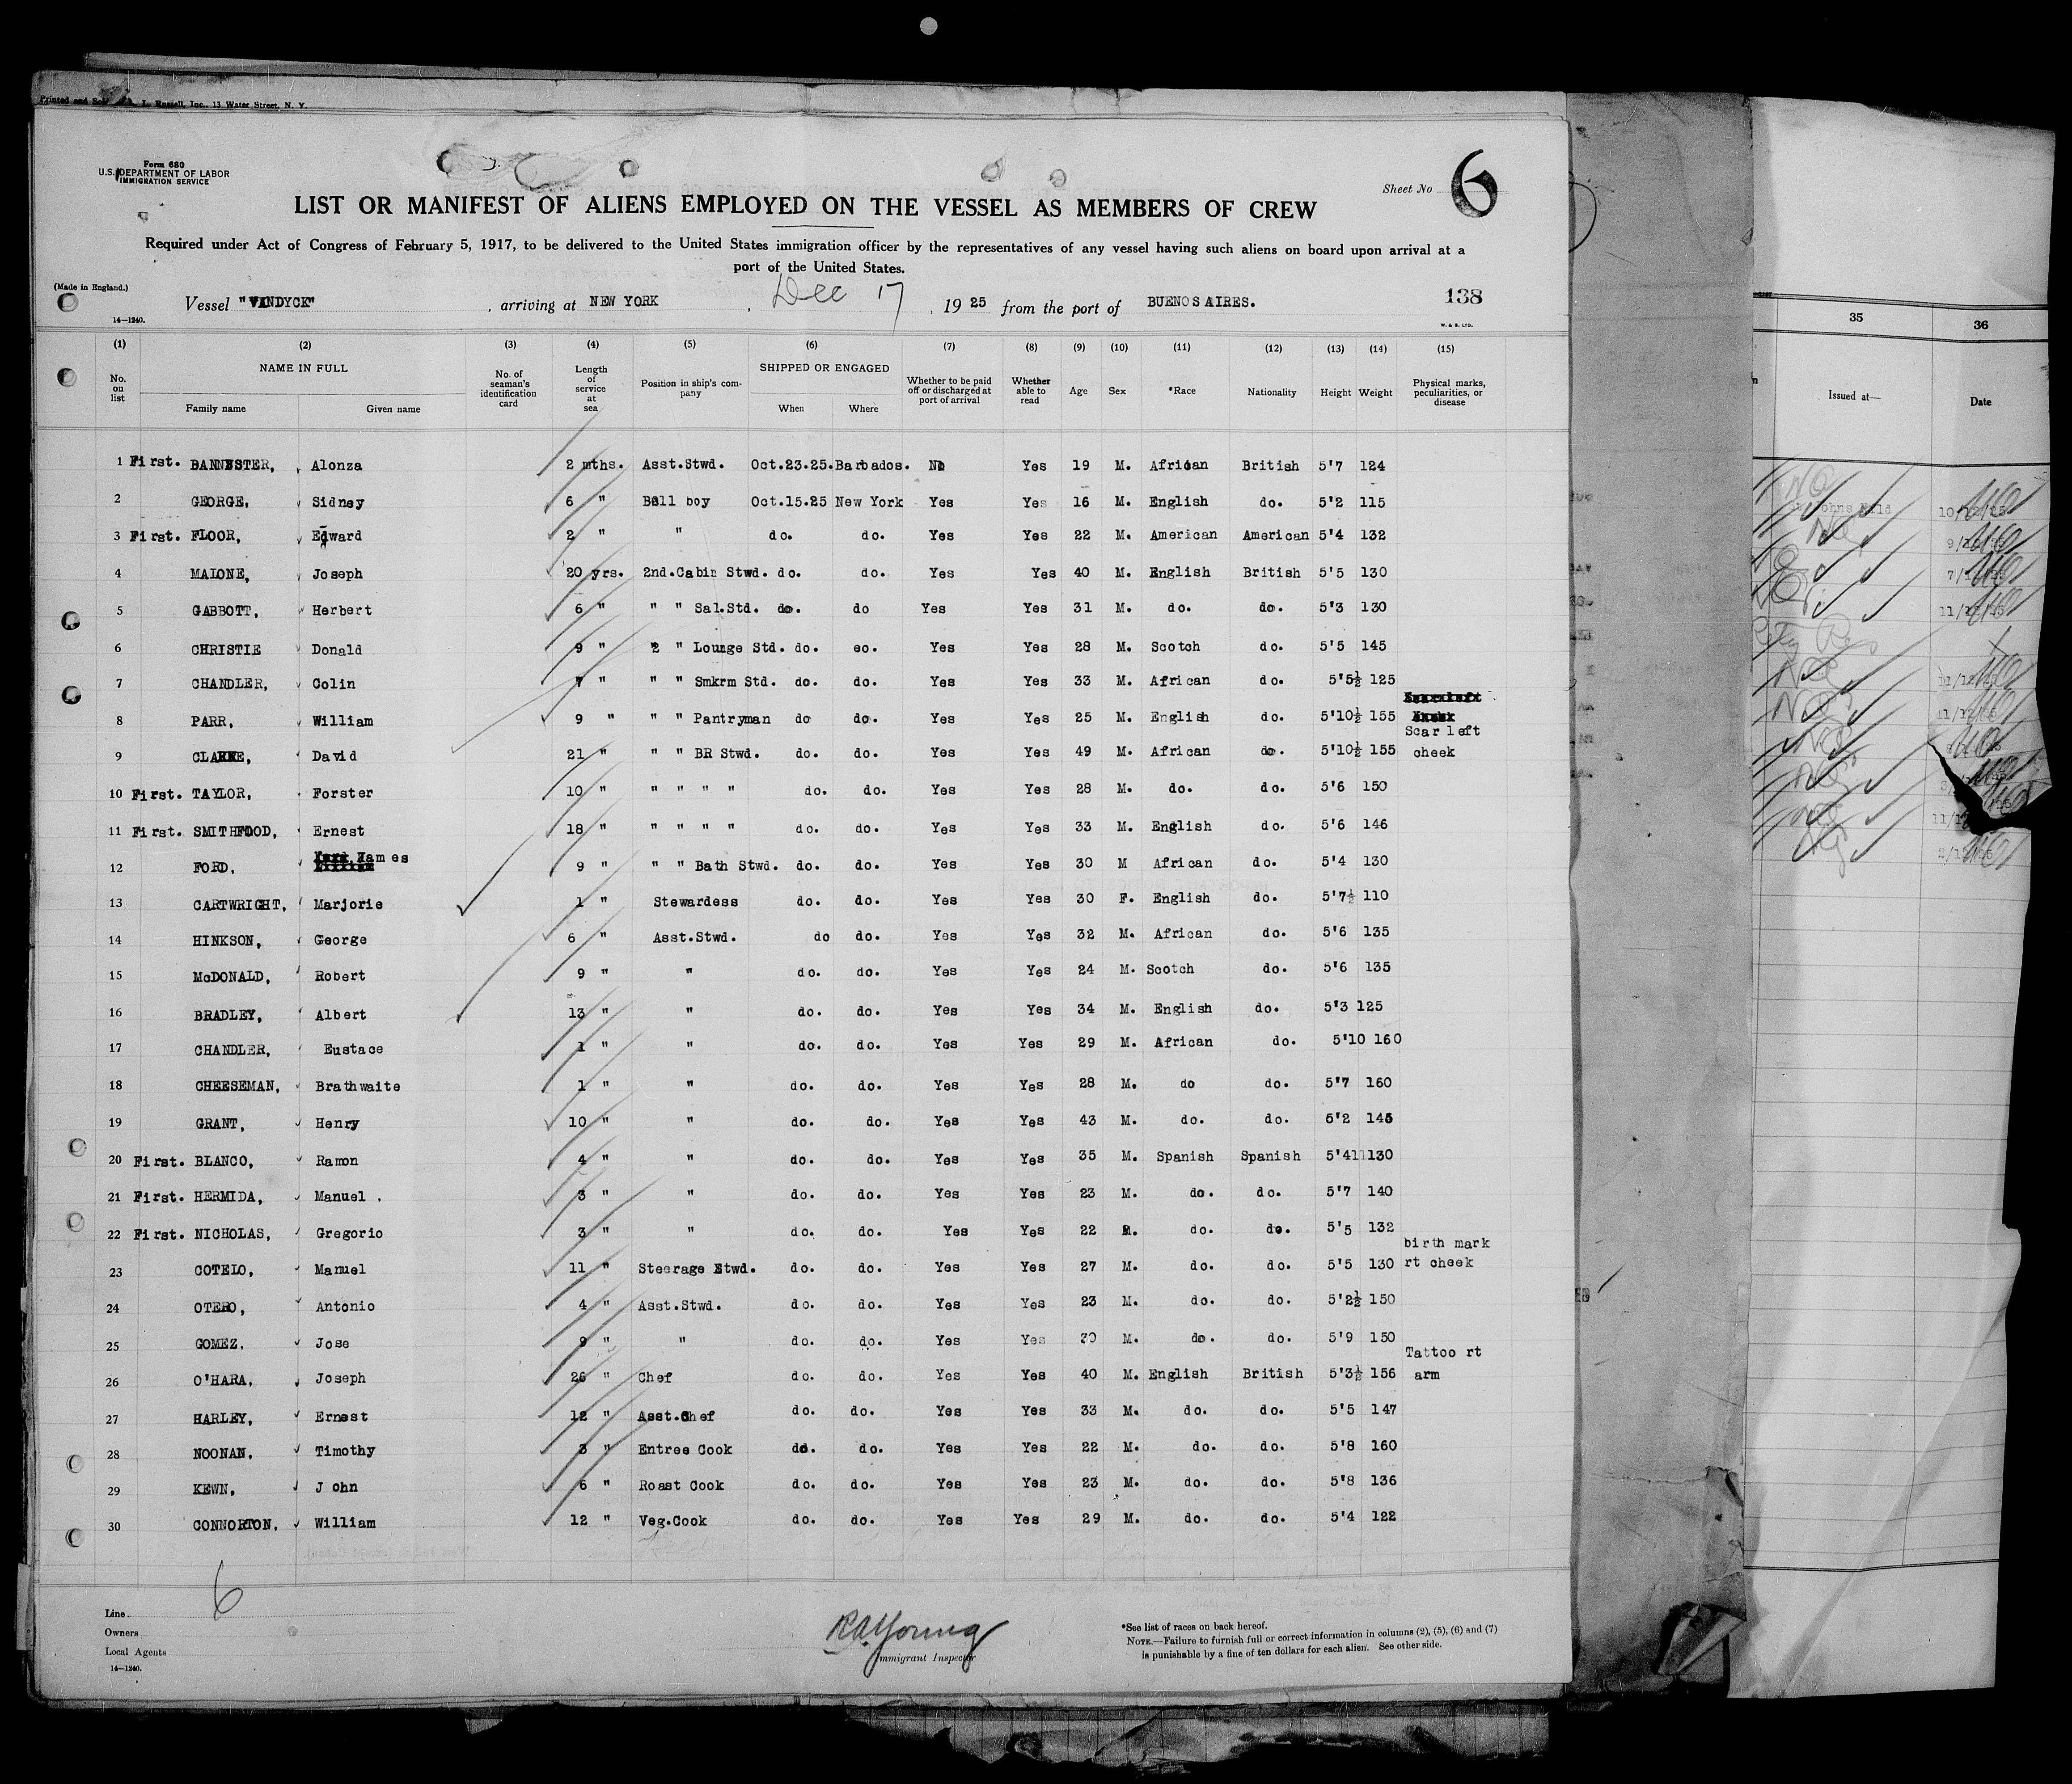 Printed and Sold L. Russell, Inc., 13 Water Street, N. Y.
Form 680
U.S. DEPARTMENT OF LABOR
IMMIGRATION SERVICE
Sheet No 6
LIST OR MANIFEST OF ALIENS EMPLOYED ON THE VESSEL AS MEMBERS OF CREW
Required under Act of Congress of February 5, 1917, to be delivered to the United States immigration officer by the representatives of any vessel having such aliens on board upon arrival at a
port of the United States.
(Made in England.)
Vessel "VANDYCK", arriving at NEW YORK, Dec 17, 1925 from the port of BUENOS AIRES. 138
14—1240. W. & S. LTD.
(1) (2) (3) (4) (5) (6) (7) (8) (9) (10) (11) (12) (13) (14) (15) 35 36
No. on list NAME IN FULL Family name Given name No. of seaman's identification card Length of service at sea Position in ship's company SHIPPED OR ENGAGED When Where Whether to be paid off or discharged at port of arrival Whether able to read Age Sex *Race Nationality Height Weight Physical marks, peculiarities, or disease Issued at— Date
1 First. BANNISTER, Alonza 2 mths. Asst.Stwd. Oct.23.25. Barbados. No Yes 19 M. African British 5'7 124
2 GEORGE, Sidney 6 " Bell boy Oct.15.25 New York Yes Yes 16 M. English do. 5'2 115
3 First. FLOOR, Edward 2 " " do. do. Yes Yes 22 M. American American 5'4 132
4 MALONE, Joseph 20 yrs. 2nd.Cabin Stwd. do. do. Yes Yes 40 M. English British 5'5 130
5 GABBOTT, Herbert 6 " " " Sal.Std. do. do Yes Yes 31 M. do. do. 5'3 130
6 CHRISTIE Donald 9 " 2 " Lounge Std. do. eo. Yes Yes 28 M. Scotch do. 5'5 145
7 CHANDLER, Colin 7 " " " Smkrm Std. do. do. Yes Yes 33 M. African do. 5'5½ 125
8 PARR, William 9 " " " Pantryman do do. Yes Yes 25 M. English do. 5'10½ 155
Scar left
9 CLARKE, David 21 " " " BR Stwd. do. do. Yes Yes 49 M. African do. 5'10½ 155 cheek
10 First. TAYLOR, Forster 10 " " " " " do. do. Yes Yes 28 M. do. do. 5'6 150
11 First. SMITHFOOD, Ernest 18 " " " " " do. do. Yes Yes 33 M. English do. 5'6 146
12 FORD, James 9 " " " Bath Stwd. do. do. Yes Yes 30 M African do. 5'4 130
13 CARTWRIGHT, Marjorie 1 " Stewardess do. do. Yes Yes 30 F. English do. 5'7½ 110
14 HINKSON, George 6 " Asst.Stwd. do do. Yes Yes 32 M. African do. 5'6 135
15 McDONALD, Robert 9 " " do. do. Yes Yes 24 M. Scotch do. 5'6 135
16 BRADLEY, Albert 13 " " do. do. Yes Yes 34 M. English do. 5'3 125
17 CHANDLER, Eustace 1 " " do. do. Yes Yes 29 M. African do. 5'10 160
18 CHEESEMAN, Brathwaite 1 " " do. do. Yes Yes 28 M. do do. 5'7 160
19 GRANT, Henry 10 " " do. do. Yes Yes 43 M. do. do. 5'2 145
20 First. BLANCO, Ramon 4 " " do. do. Yes Yes 35 M. Spanish Spanish 5'4 130
21 First. HERMIDA, Manuel . 3 " " do. do. Yes Yes 23 M. do. do. 5'7 140
22 First. NICHOLAS, Gregorio 3 " " do. do. Yes Yes 22 M. do. do. 5'5 132
birth mark
23 COTELO, Manuel 11 " Steerage Stwd. do. do. Yes Yes 27 M. do. do. 5'5 130 rt cheek
24 OTERO, Antonio 4 " Asst.Stwd. do. do. Yes Yes 23 M. do. do. 5'2½ 150
25 GOMEZ. Jose 9 " " do. do. Yes Yes 30 M. do. do. 5'9 150
Tattoo rt
26 O'HARA, Joseph 26 " Chef do. do. Yes Yes 40 M. English British 5'3½ 156 arm
27 HARLEY, Ernest 12 " Asst.Chef do. do. Yes Yes 33 M. do. do. 5'5 147
28 NOONAN, Timothy 3 " Entree Cook do. do. Yes Yes 22 M. do. do. 5'8 160
29 KEWN, John 6 " Roast Cook do. do. Yes Yes 23 M. do. do. 5'8 136
30 CONNORTON, William 12 " Veg.Cook do. do. Yes Yes 29 M. do. do. 5'4 122
6
Line
Owners
Local Agents
14—1240.
R A Young
Immigrant Inspector
*See list of races on back hereof.
NOTE.—Failure to furnish full or correct information in columns (2), (5), (6) and (7)
is punishable by a fine of ten dollars for each alien. See other side.